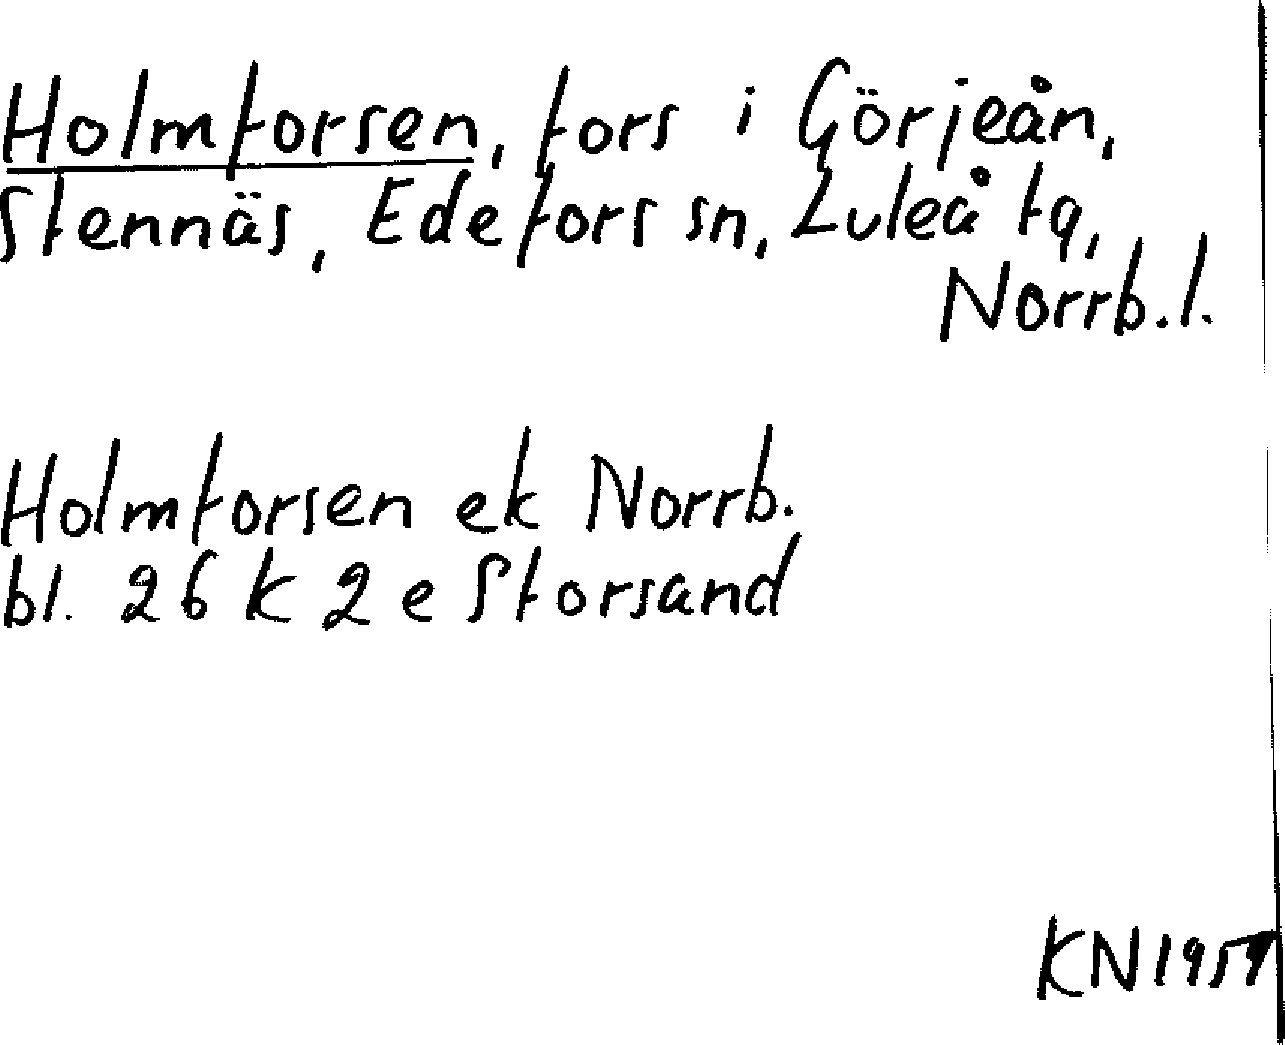 Holmforsen, fors i Görjeån,
Stennäs, Edefors sn, Luleå tg,
Norrb. l.
Holmforsen ek Norrb.
bl. 26 K 2 e Storsand